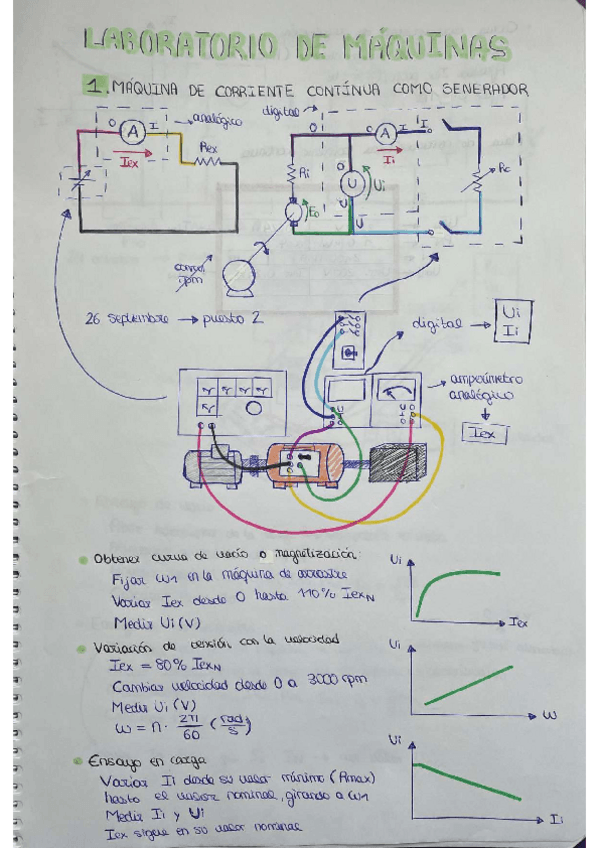 LABORATORIO DE MÁQUINAS
1. MÁQUINA DE CORRIENTE CONTÍNUA COMO GENERADOR
analógico
digital
O A I
Iex
Rex
O A I I
Ii
Ri
O
U Ui
U U
Eo
Rc
control rpm
26 septiembre → puesto 2
digital → Ui
Ii
amperímetro
analógico
Iex
Obtener curva de vacío o magnetización:
Fijar ω1 en la máquina de arrastre
Variar Iex desde 0 hasta 110% IexN
Medir Ui (V)
Ui
Iex
Variación de tensión con la velocidad
Iex = 80% IexN
Cambiar velocidad desde 0 a 3000 rpm
Medir Ui (V)
ω = n · 2π/60 (rad/s)
Ui
ω
Ensayo en carga
Variar Ii desde su valor mínimo (Rmax)
hasta el valor nominal, girando a ω1
Medir Ii y Ui
Iex sigue en su valor nominal
Ui
Ii